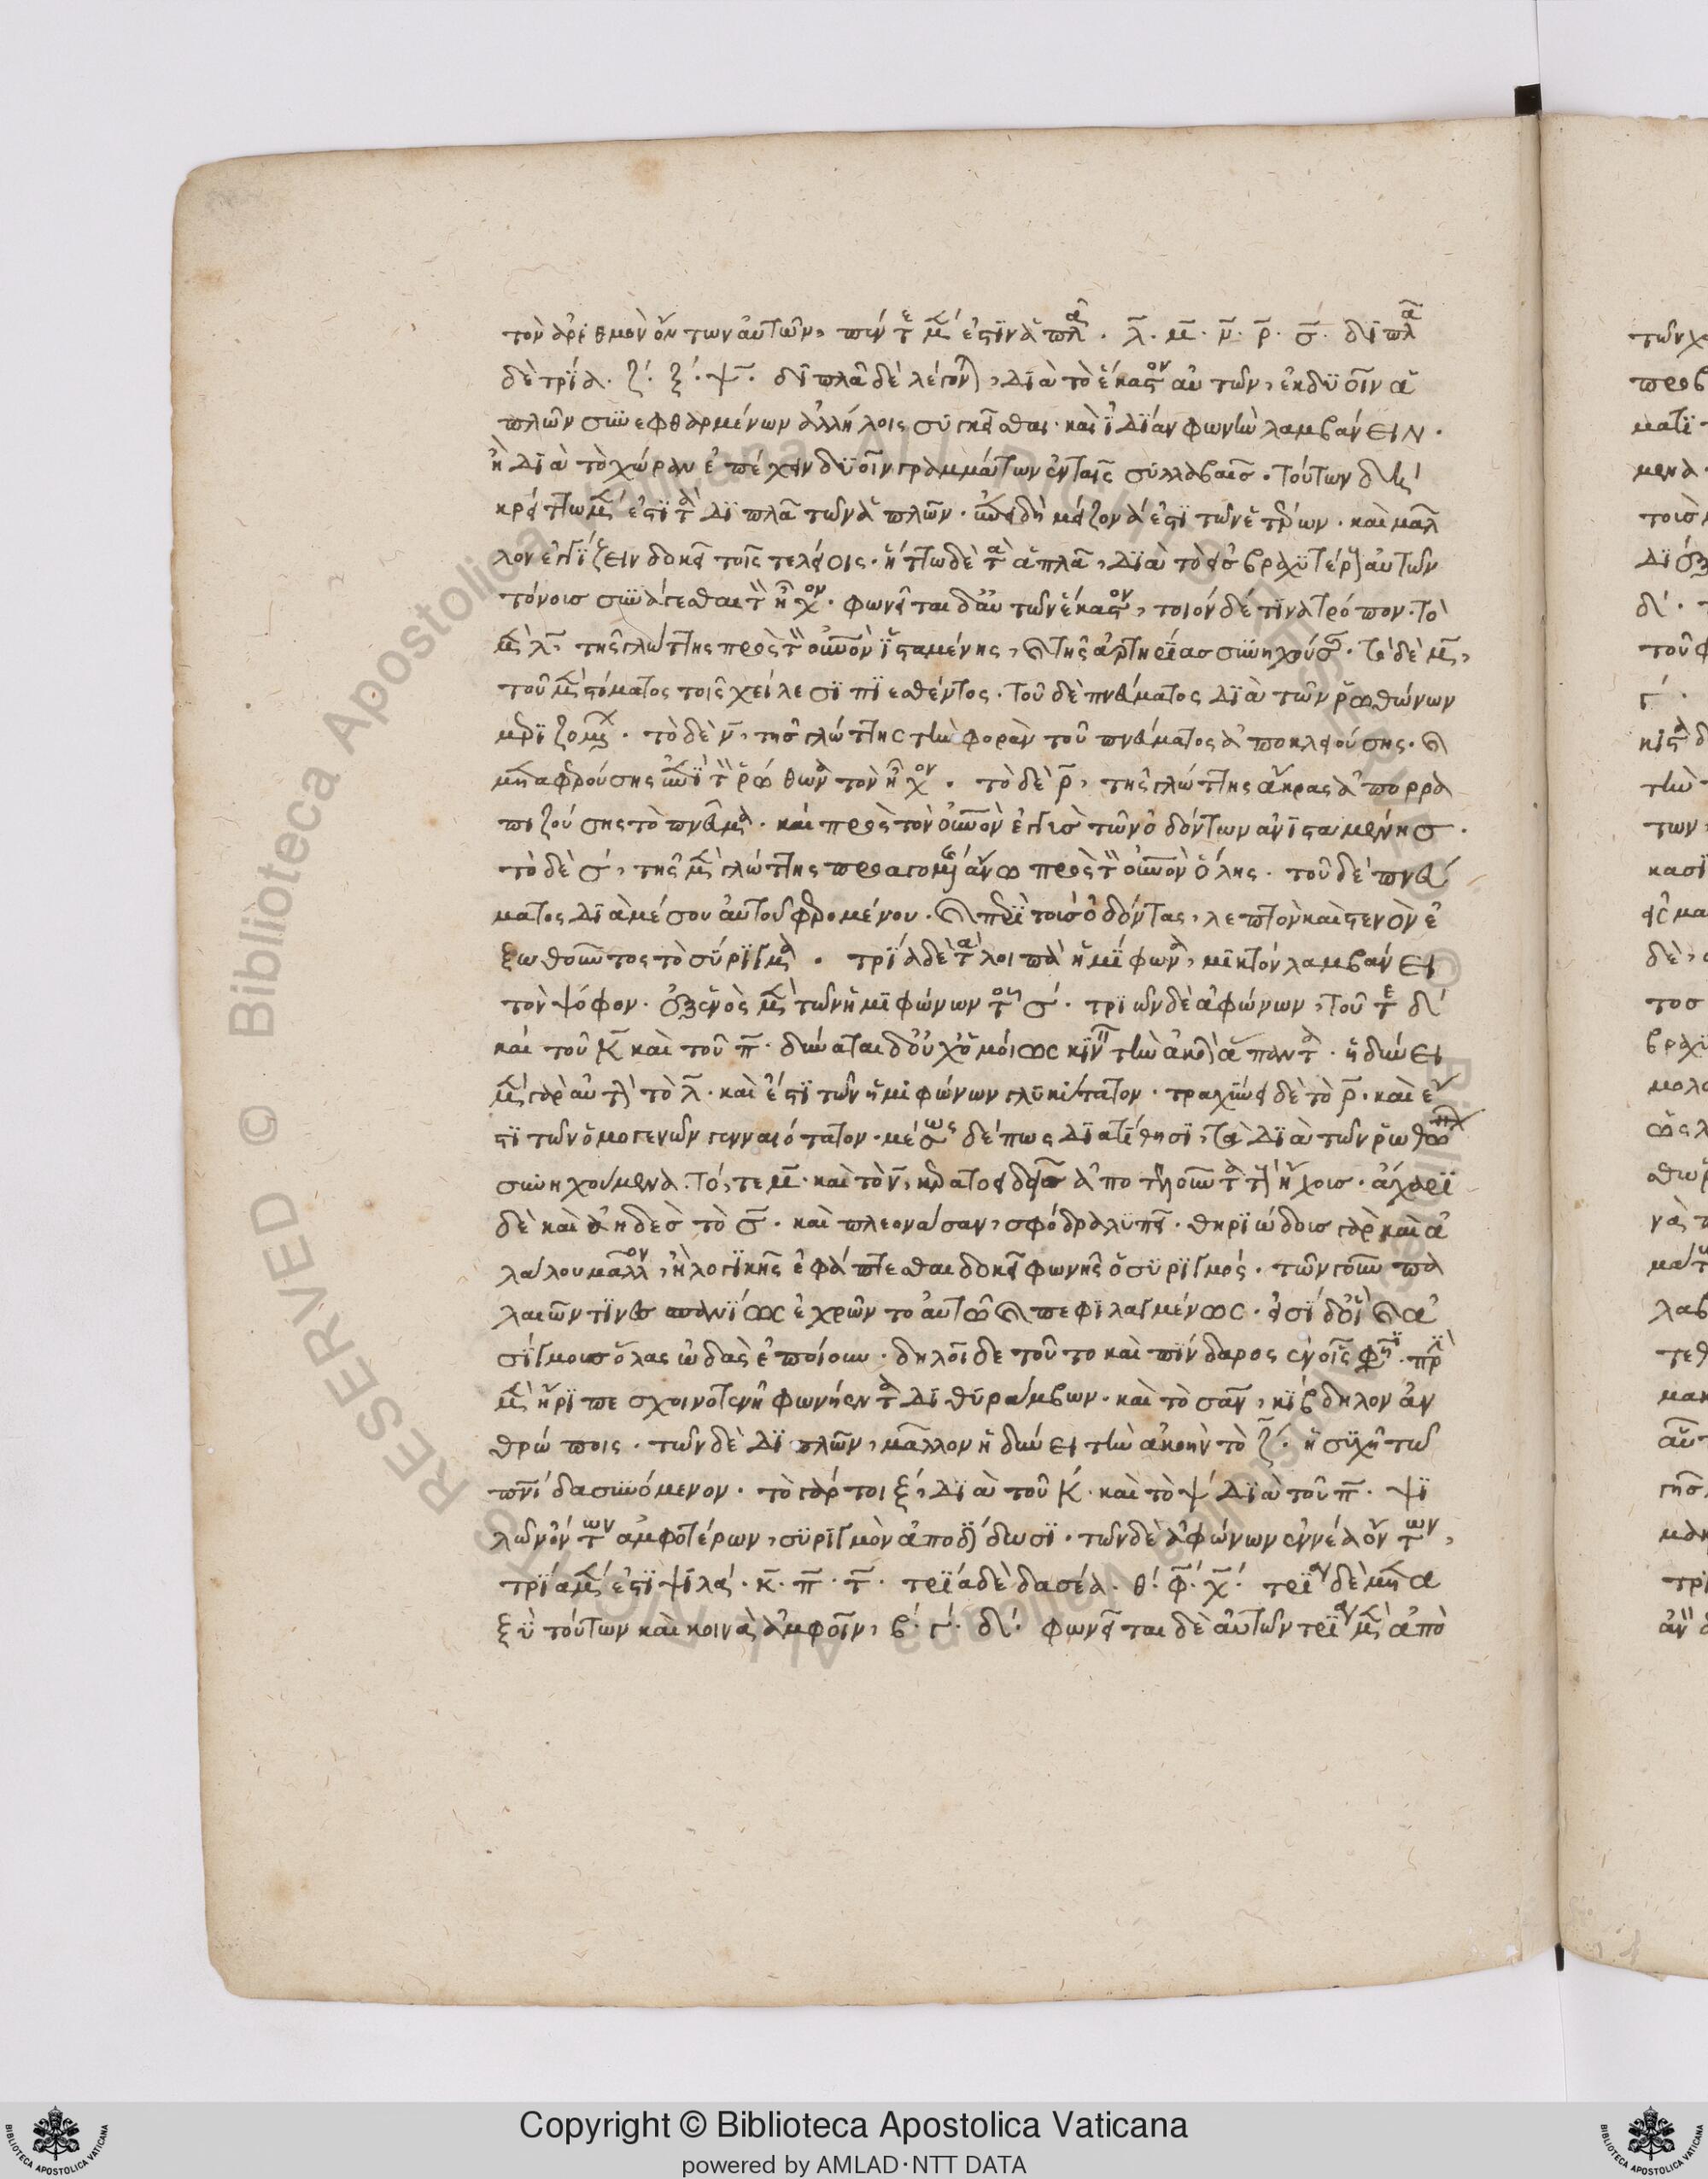 τὸν ἀριθμὸν ὄντων αὐτῶν, πέντε μέν ἐστιν ἁπλᾶ· λ̄· μ̄· ν̄· ρ̄· σ̄· διπλᾶ
δὲ τρία· ζ· ξ· ψ̄· διπλᾶ δὲ λέγουσιν, διὰ τὸ ἕκαστον αὐτῶν, ἐκ δυοῖν ἁ
πλῶν συνεφθαρμένων ἀλλήλοις συγκεῖσθαι· καὶ ἰδίαν φωνὴν λαμβάνειν·
ἢ διὰ τὸ χώραν ἐπέχειν δυοῖν γραμμάτων ἐν ταῖς συλλαβαῖς· τούτων δὲ
κρείττω μέν ἐστι τὰ διπλᾶ τῶν ἁπλῶν· ἐπειδὴ μείζονά ἐστι τῶν ἑτέρων· καὶ μᾶλ
λον ἐγγίζειν δοκεῖ τοῖς τελείοις· ἥττω δὲ τὰ ἁπλᾶ, διὰ τὸ εἰς βραχυτέρους αὐτῶν
τόνους συνάγεσθαι τὸν ἦχον· φωνεῖται δ' αὐτῶν ἕκαστον, τοιόνδέ τινα τρόπον· τὸ
μὲν λ̄, τῆς γλώττης πρὸς τὸν οὐρανὸν ἱσταμένης, καὶ τῆς ἀρτηρίας συνηχούσης· τὸ δὲ μ̄,
τοῦ μὲν στόματος τοῖς χείλεσι πιεσθέντος· τοῦ δὲ πνεύματος διὰ τῶν ῥωθώνων
μεριζομένου· τὸ δὲ ν̄, τῆς γλώττης τὴν φορὰν τοῦ πνεύματος ἀποκλειούσης· καὶ
μεταφερούσης ἐπὶ τοὺς ῥώθωνας τὸν ἦχον· τὸ δὲ ρ̄, τῆς γλώττης ἄκρας ἀπορρα
πιζούσης τὸ πνεῦμα· καὶ πρὸς τὸν οὐρανὸν ἐγγὺς τῶν ὀδόντων ἀνισταμένης·
τὸ δὲ σ, τῆς μὲν γλώττης προσαγομένης ἄνω πρὸς τὸν οὐρανὸν ὅλης· τοῦ δὲ πνεύ
ματος διὰ μέσου αὐτοῦ φερομένου· καὶ περὶ τοὺς ὀδόντας, λεπτὸν καὶ στενὸν ἐ
ξωθοῦντος τὸ σύριγμα· τρία δὲ τὰ λοιπὰ ἡμίφωνα, μικτὸν λαμβάνει
τὸν ψόφον· ἐξ ἑνὸς μὲν τῶν ἡμιφώνων τοῦ σ· τριῶν δὲ ἀφώνων, τοῦ τε δ
καὶ τοῦ κ̄ καὶ τοῦ π̄· δύναται δ' οὐχ ὁμοίως κινεῖν τὴν ἀκοὴν ἅπαντα· ἡδύνει
μὲν γὰρ αὐτὴν τὸ λ̄· καὶ ἔστι τῶν ἡμιφώνων γλυκύτατον· τραχύνει δὲ τὸ ρ̄· καὶ ἔ
στι τῶν ὁμογενῶν γενναιότατον· μέσως δέ πως διατίθησι, τὰ διὰ τῶν ῥωθώνων
συνηχούμενα· τό, τε μ̄· καὶ τὸ ν̄, κερατοειδεῖς ἀποτελοῦντα τοὺς ἤχους· ἄχαρι
δὲ καὶ ἀηδὲς τὸ σ̄· καὶ πλεονάσαν, σφόδρα λυπεῖ· θηριώδους γὰρ καὶ ἀ
λάλου μᾶλλον, ἢ λογικῆς ἐφάπτεσθαι δοκεῖ φωνῆς ὁ συριγμός· τῶν γοῦν πα
λαιῶν τινες σπανίως ἐχρῶντο αὐτῷ καὶ πεφυλαγμένως· εἰσὶ δ' οἳ καὶ ἀ
σίγμους ὅλας ᾠδὰς ἐποίουν· δηλοῖ δὲ τοῦτο καὶ πίνδαρος ἐν οἷς φησί· πρὶν
μὲν ἤριπε σχοινοτενῆ φωνήεντα διθυράμβων· καὶ τὸ σάν, κίβδηλον ἀν
θρώποις· τῶν δὲ διπλῶν, μᾶλλον ἡδύνει τὴν ἀκοὴν τὸ ζ· ἡσυχῇ τῷ
πνεύματι δασυνόμενον· τὸ γάρ τοι ξ, διὰ τοῦ κ· καὶ τὸ ψ διὰ τοῦ π̄· ψι
λῶν ὄντων ἀμφοτέρων, συριγμὸν ἀποδίδωσι· τῶν δὲ ἀφώνων ἐννέα ὄντων,
τρία μέν ἐστι ψιλά· κ̄· π̄· τ̄· τρία δὲ δασέα· θ· φ̄· χ̄· τρία δὲ μετα
ξὺ τούτων καὶ κοινὰ ἀμφοῖν, β· γ· δ· φωνεῖται δὲ αὐτῶν τρία μὲν ἀπὸ
Copyright © Biblioteca Apostolica Vaticana
powered by AMLAD·NTT DATA